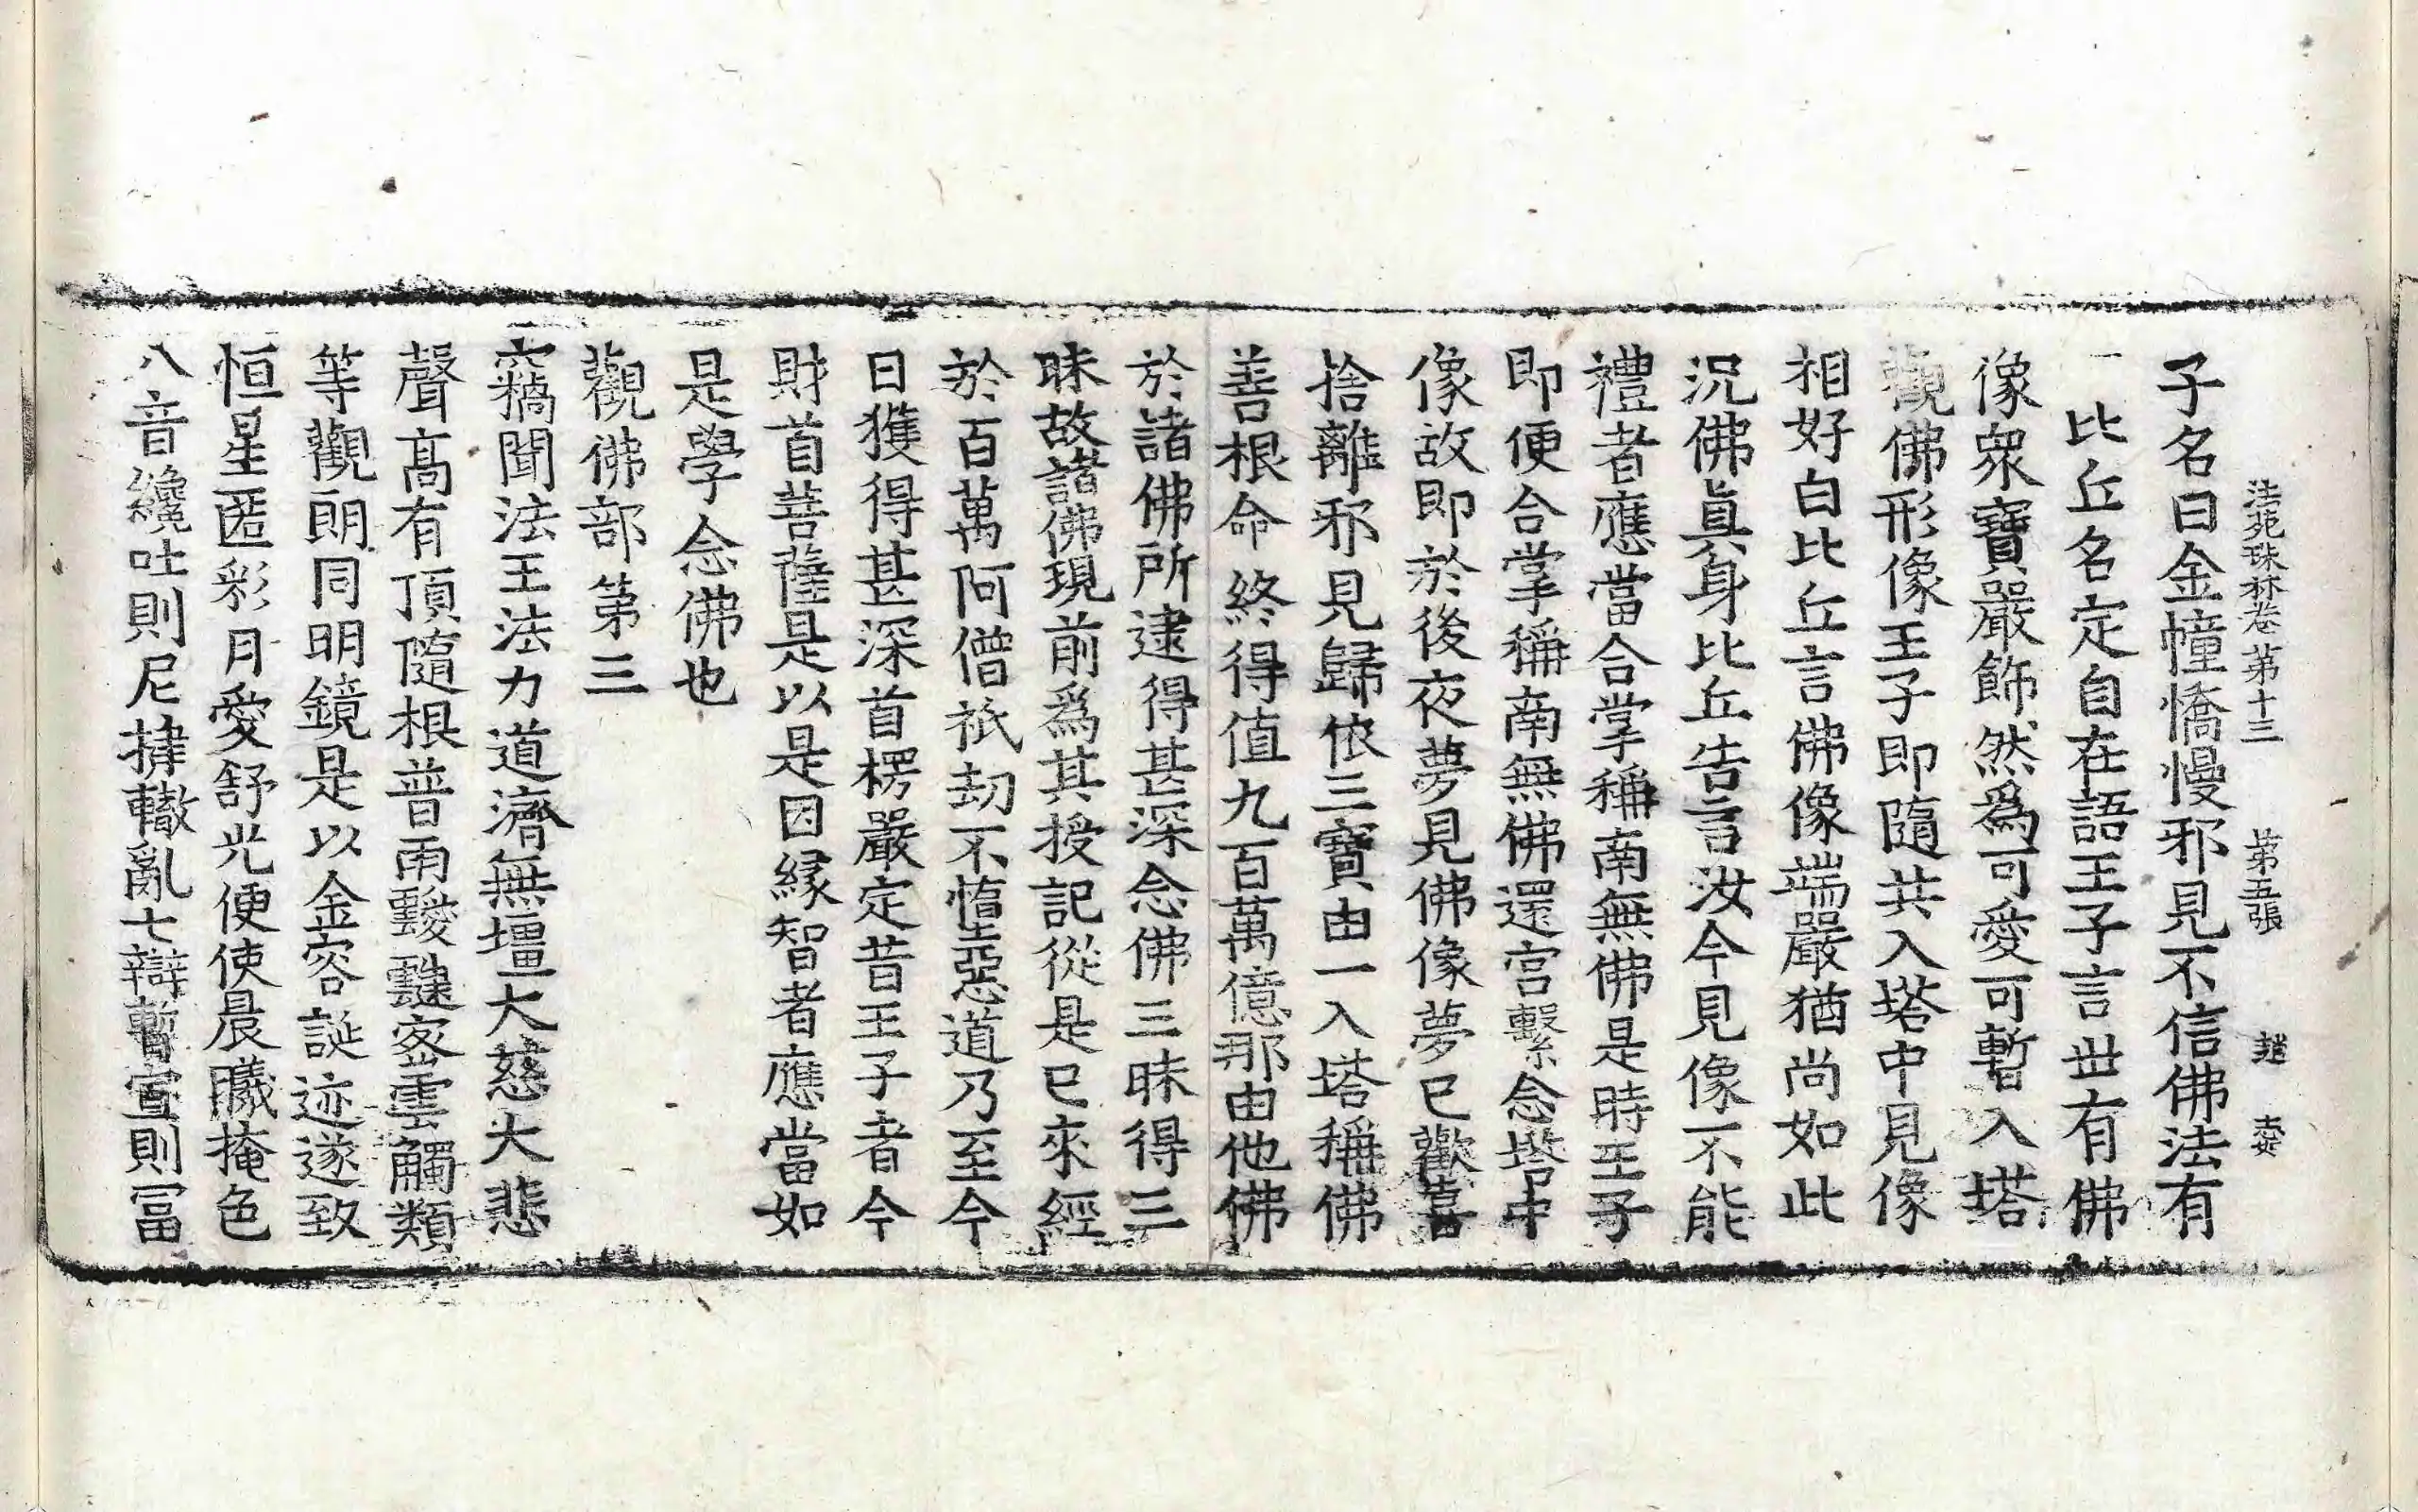 法苑珠林卷第十三 第五張 趙 𡊮
子名曰金幢憍慢邪見不信佛法有
一比丘名定自在語王子言世有佛
像衆寶嚴飾然爲可愛可暫入塔
觀佛形像王子即隨共入塔中見像
相好白比丘言佛像端嚴猶尚如此
況佛眞身比丘告言汝今見像不能
禮者應當合掌稱南無佛是時王子
即便合掌稱南無佛還宫繫念塔中
像故即於後夜夢見佛像夢已歡喜
捨離邪見歸依三寶由一入塔稱佛
善根命終得值九百萬億那由他佛
於諸佛所逮得甚深念佛三昧得三
昧故諸佛現前爲其授記從是已來經
於百萬阿僧祇劫不墮惡道乃至今
日獲得甚深首楞嚴定昔王子者今
財首菩薩是以是因縁智者應當如
是學念佛也
觀佛部第三
竊聞法王法力道濟無壃大慈大悲
聲髙有頂隨根普雨靉靆密雲觸類
等觀朗同明鏡是以金容誕迹遂致
恒星匿彩月愛舒光便使晨曦掩色
八音纔吐則尼揵轍亂七辯暫宣則冨